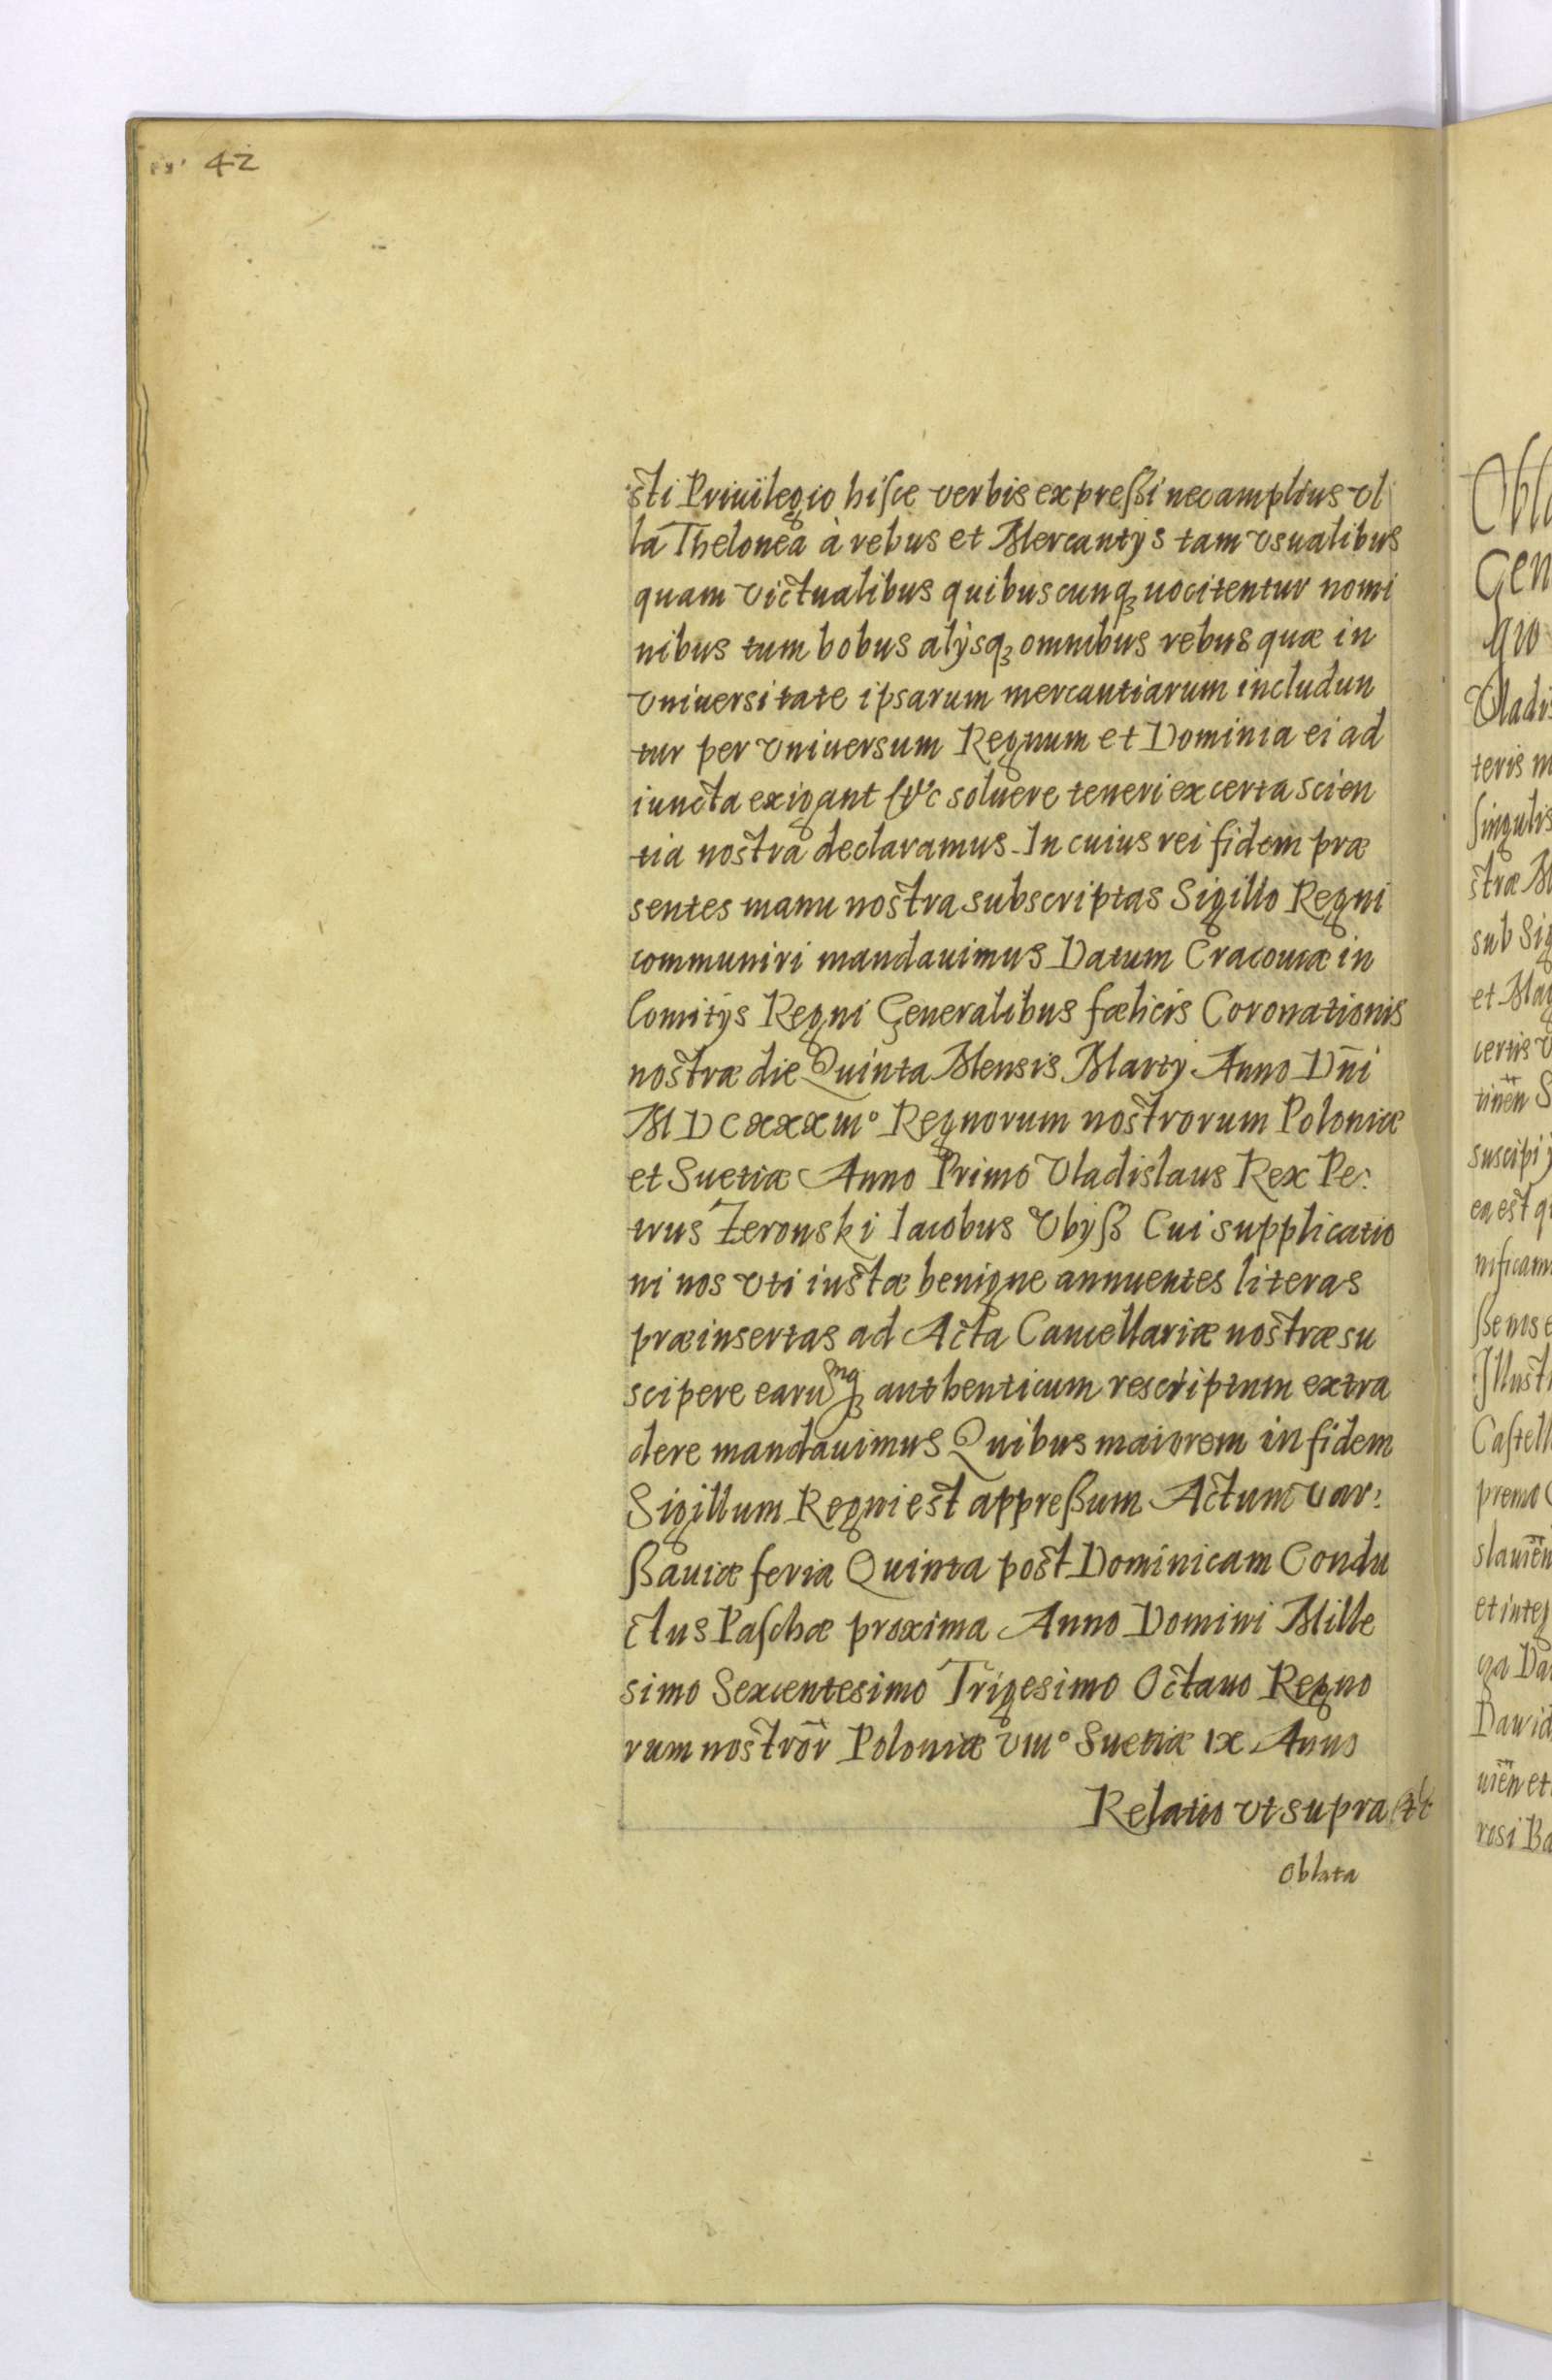 42
sti Priuilegio hisce verbis expreßi nec amplius vl
la Thelonea à rebus et Mercantijs tam vsualibus
quam victualibus quibuscunqꝫ uocitentur nomi
nibus tum bobus alijsqꝫ omnibus rebus quæ in
vniuersitate ipsarum mercantiarum includun
tur per vniuersum Regnum et Dominia ei ad
iuncta exigant &c soluere teneri ex certa scien
tia nostra declaramus. In cuius rei fidem præ
sentes manu nostra subscriptas Sigillo Regni
communiri mandauimus Datum Cracouiæ in
Comitijs Regni Generalibus fælicis Coronationis
nostræ die Quinta Mensis Martij Anno Dn̄i
MDCXXXIIIº Regnorum nostrorum Poloniæ
et Suetiæ Anno Primo Vladislaus Rex Pe:
trus Zeronski Iacobus Vbyß Cui supplicatio
ni nos vti iustæ benigne annuentes literas
præinsertas ad Acta Cancellariæ nostræ su
scipere earumqꝫ authenticum rescriptum extra
dere mandauimus Quibus maiorem in fidem
Sigillum Regni est appreßum Actum Var:
ßauiæ feria Quinta post Dominicam Condu
ctus Paschæ proxima Anno Domini Mille
simo Sexcentesimo Trigesimo Octauo Regno
rum nostror̄ Poloniæ VIº Suetiæ IX Anno
Relatio vt supra
Oblata
Gen
quo
Vladis
teris
singulis
stræ M
sub Sig
et Mag
certis v
tinen̄ S
suscipi
ea est q
nificam
ße nos e
Illust
Castell
premo
slauien̄
et integ
ga Da
Dawid
uien̄ et
rosi Ba